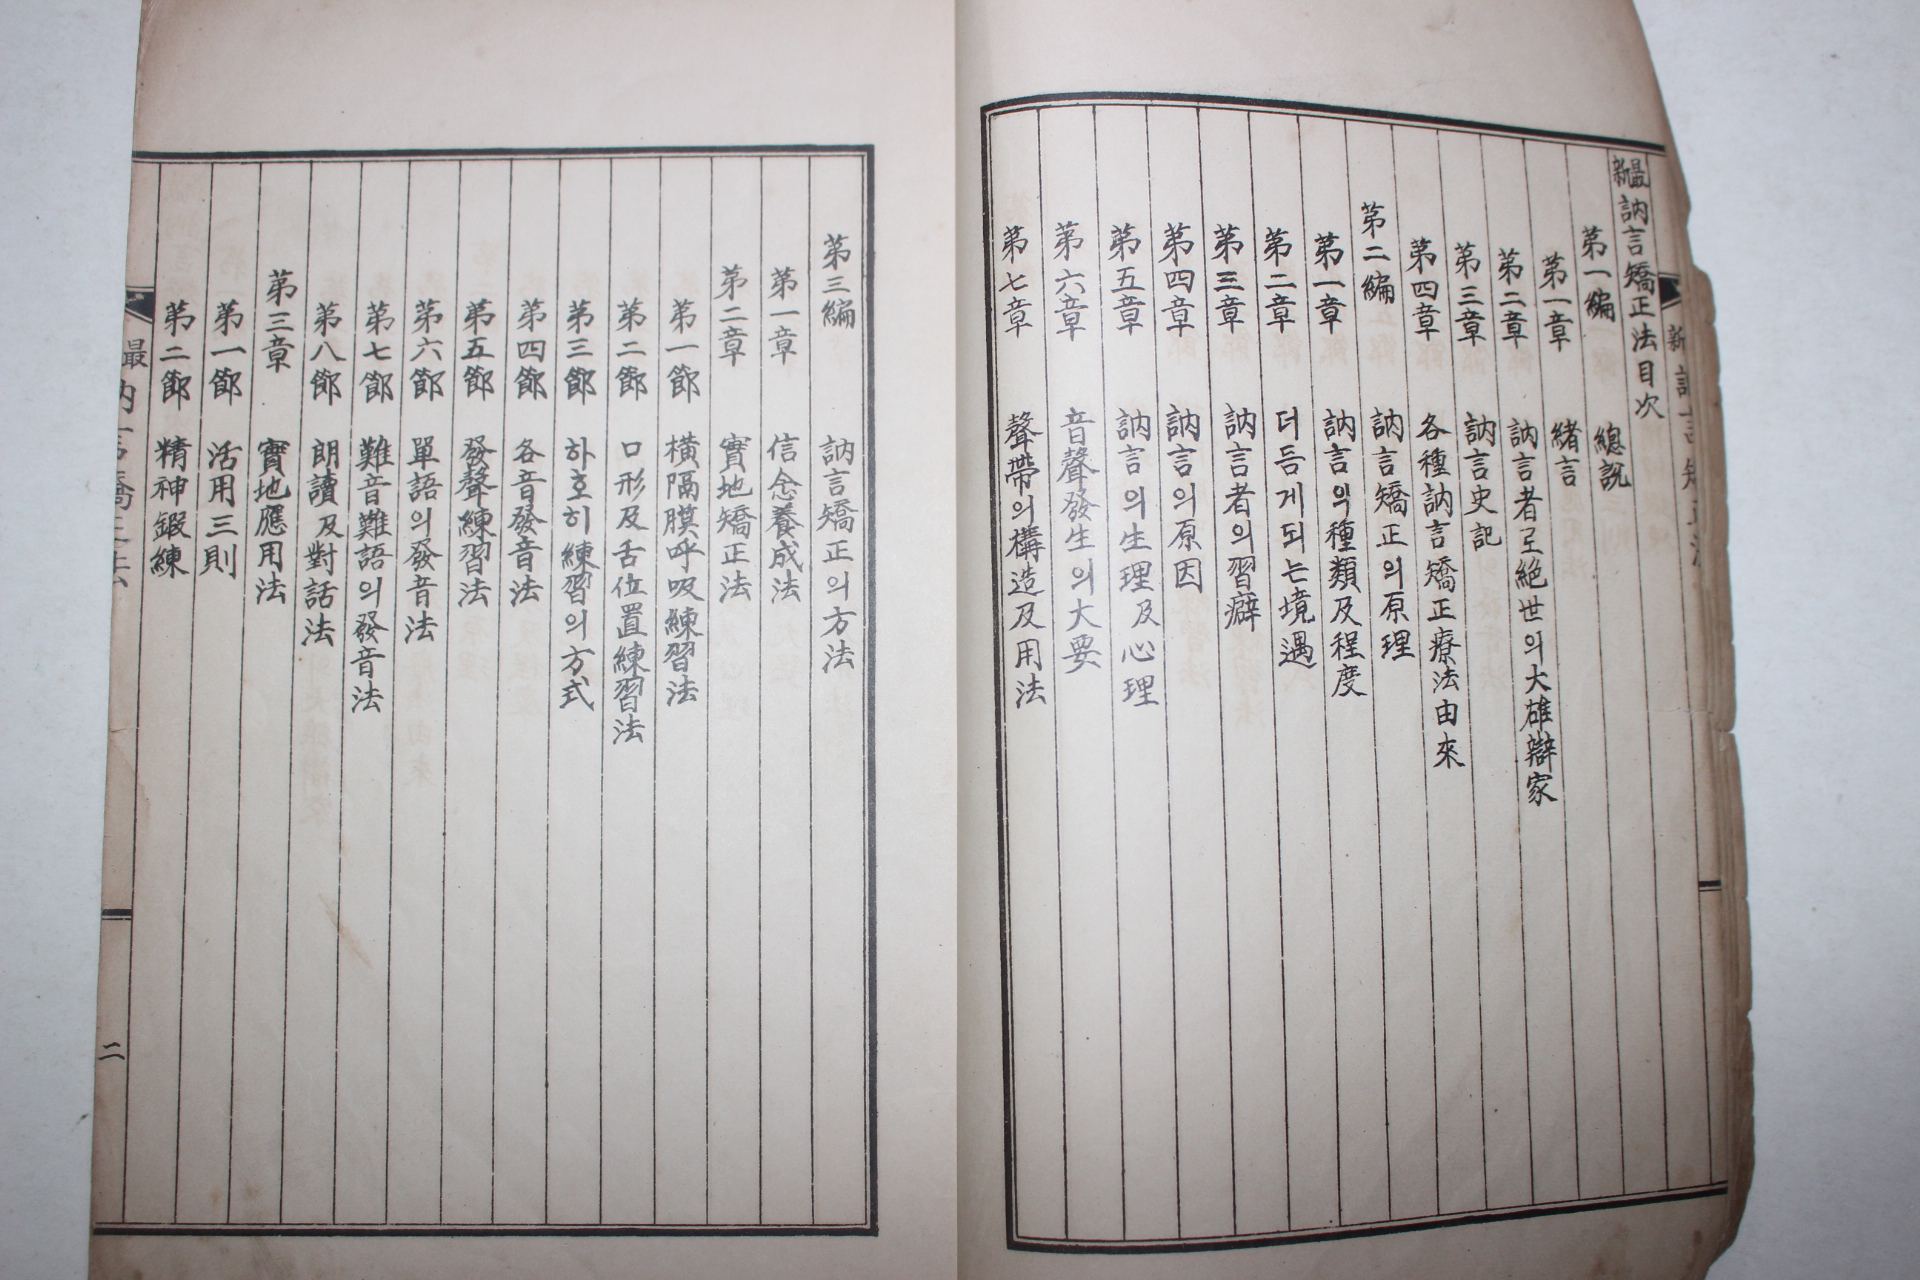 最新 訥言矯正法目次
第一編 總說
第一章 緖言
第二章 訥言者로絶世의大雄辯家
第三章 訥言史記
第四章 各種訥言矯正療法由來
第二編 訥言矯正의原理
第一章 訥言의種類及程度
第二章 더듬게되는境遇
第三章 訥言者의習癖
第四章 訥言의原因
第五章 訥言의生理及心理
第六章 音聲發生의大要
第七章 聲帶의構造及用法
第三編 訥言矯正의方法
第一章 信念養成法
第二章 實地矯正法
第一節 橫隔膜呼吸練習法
第二節 口形及舌位置練習法
第三節 하호히練習의方式
第四節 各音發音法
第五節 發聲練習法
第六節 單語의發音法
第七節 難音難語의發音法
第八節 朗讀及對話法
第三章 實地應用法
第一節 活用三則
第二節 精神鍛練
二